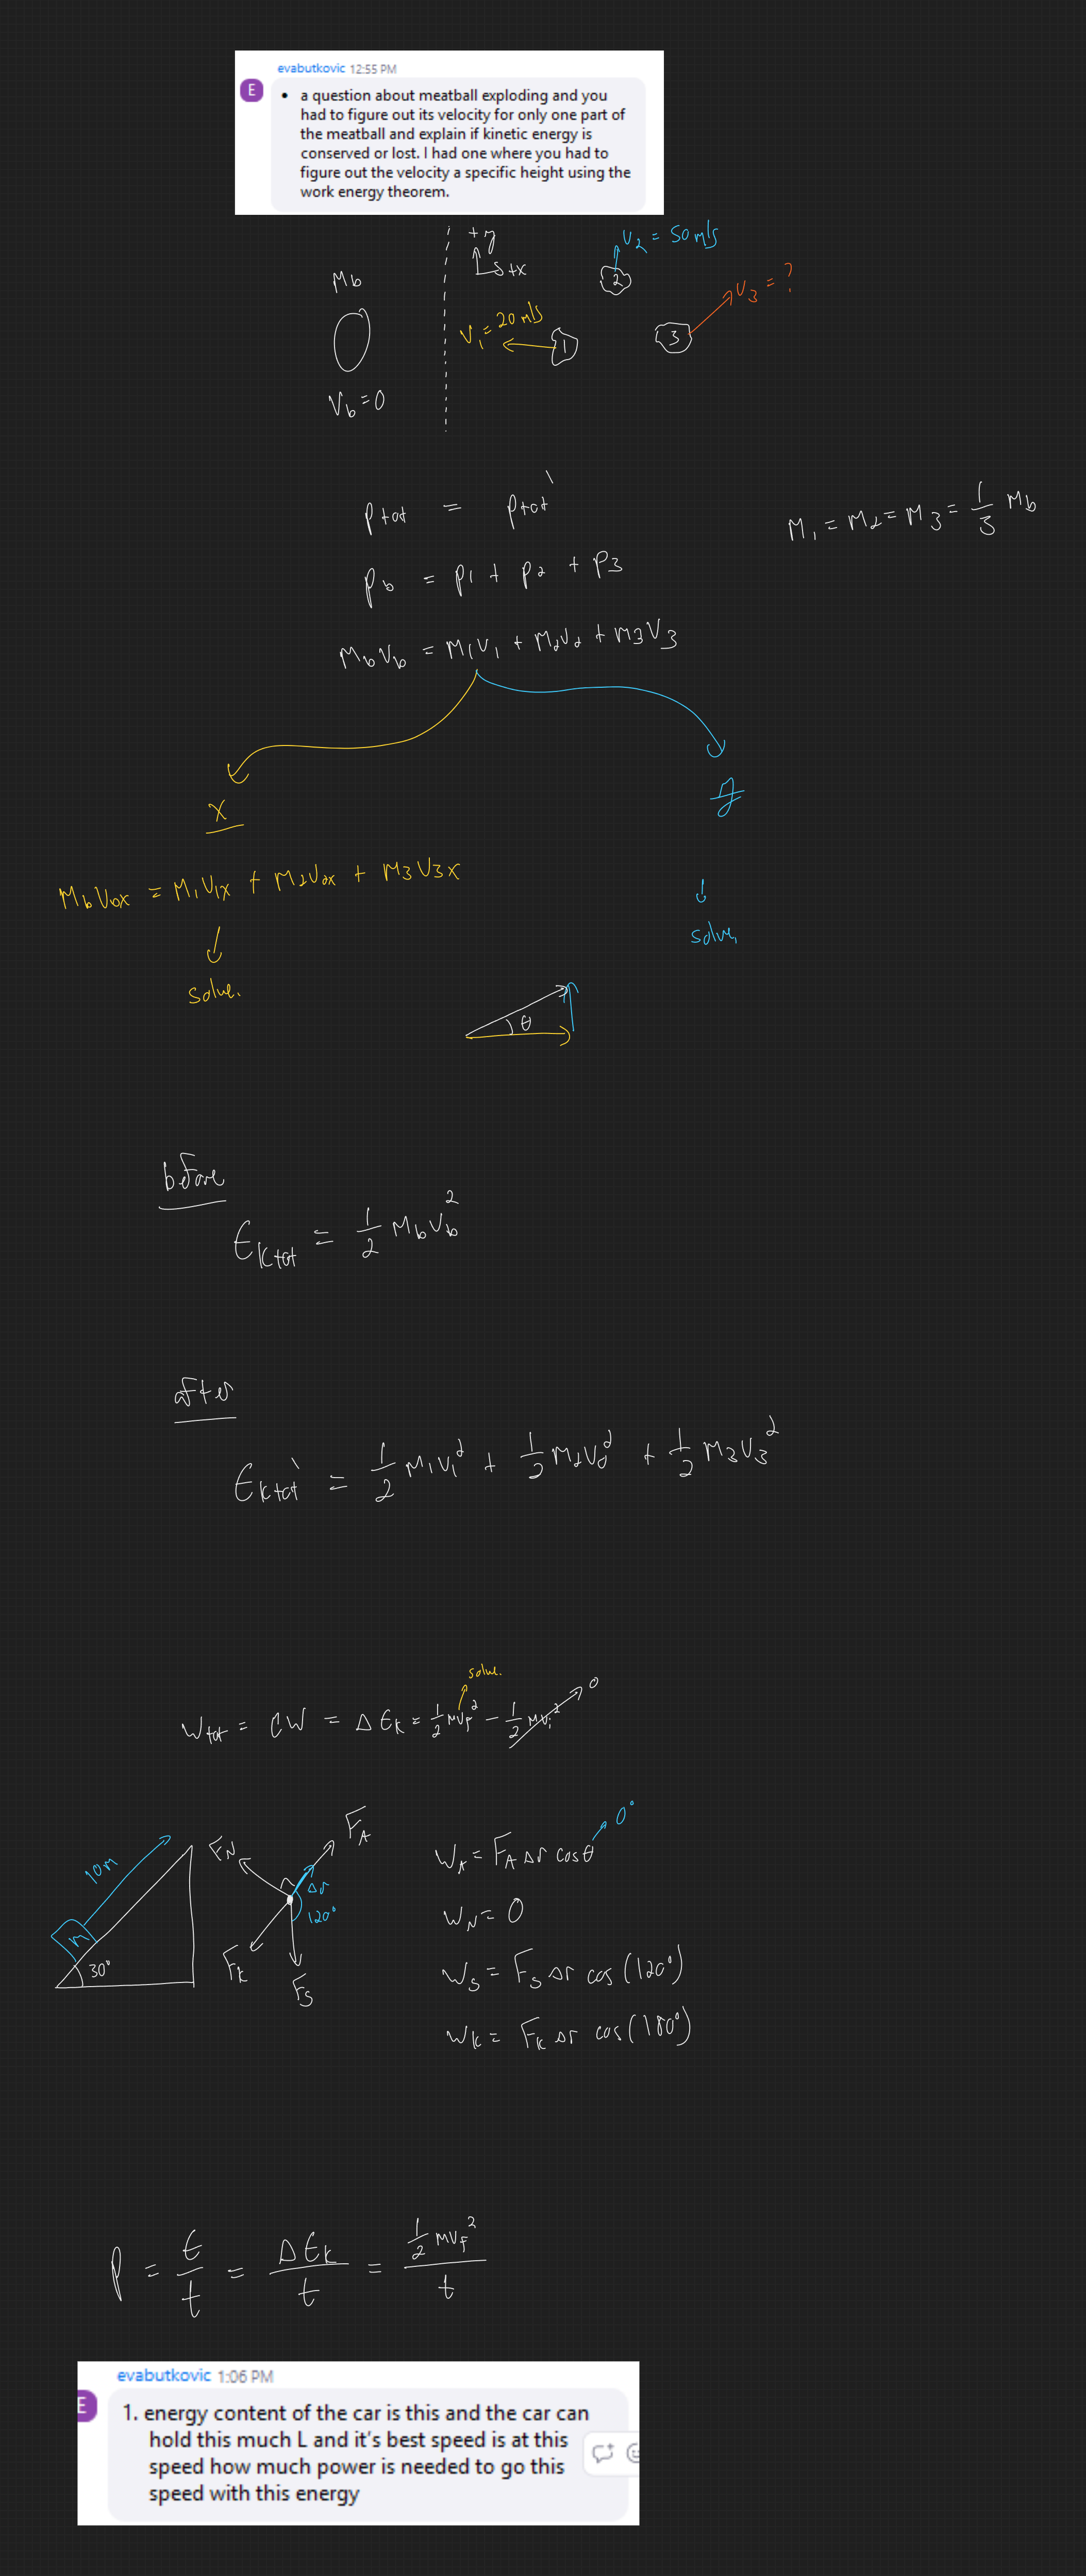 evabutkovic 12:55 PM
E
• a question about meatball exploding and you
had to figure out its velocity for only one part of
the meatball and explain if kinetic energy is
conserved or lost. I had one where you had to
figure out the velocity a specific height using the
work energy theorem.
+y
+x
Mb
Vb = 0
V1 = 20 m/s
1
V2 = 50 m/s
2
V3 = ?
3
Ptot = Ptot'
M1 = M2 = M3 = 1/3 Mb
Pb = P1 + P2 + P3
MbVb = M1V1 + M2V2 + M3V3
x
y
MbVbx = M1V1x + M2V2x + M3V3x
solve.
solve.
θ
before
Ektot = 1/2 MbVb²
after
Ektot' = 1/2 M1V1² + 1/2 M2V2² + 1/2 M3V3²
solve.
Wtot = EW = ΔEk = 1/2 mVf² - 1/2 mVi² 0
10m
m
30°
FN
FA
Δr
120°
FK
FS
WA = FA Δr cosθ 0°
WN = 0
WS = FS Δr cos(120°)
WK = FK Δr cos(180°)
P = E/t = ΔEk/t = 1/2 mVf²/t
evabutkovic 1:06 PM
E
1. energy content of the car is this and the car can
hold this much L and it's best speed is at this
speed how much power is needed to go this
speed with this energy